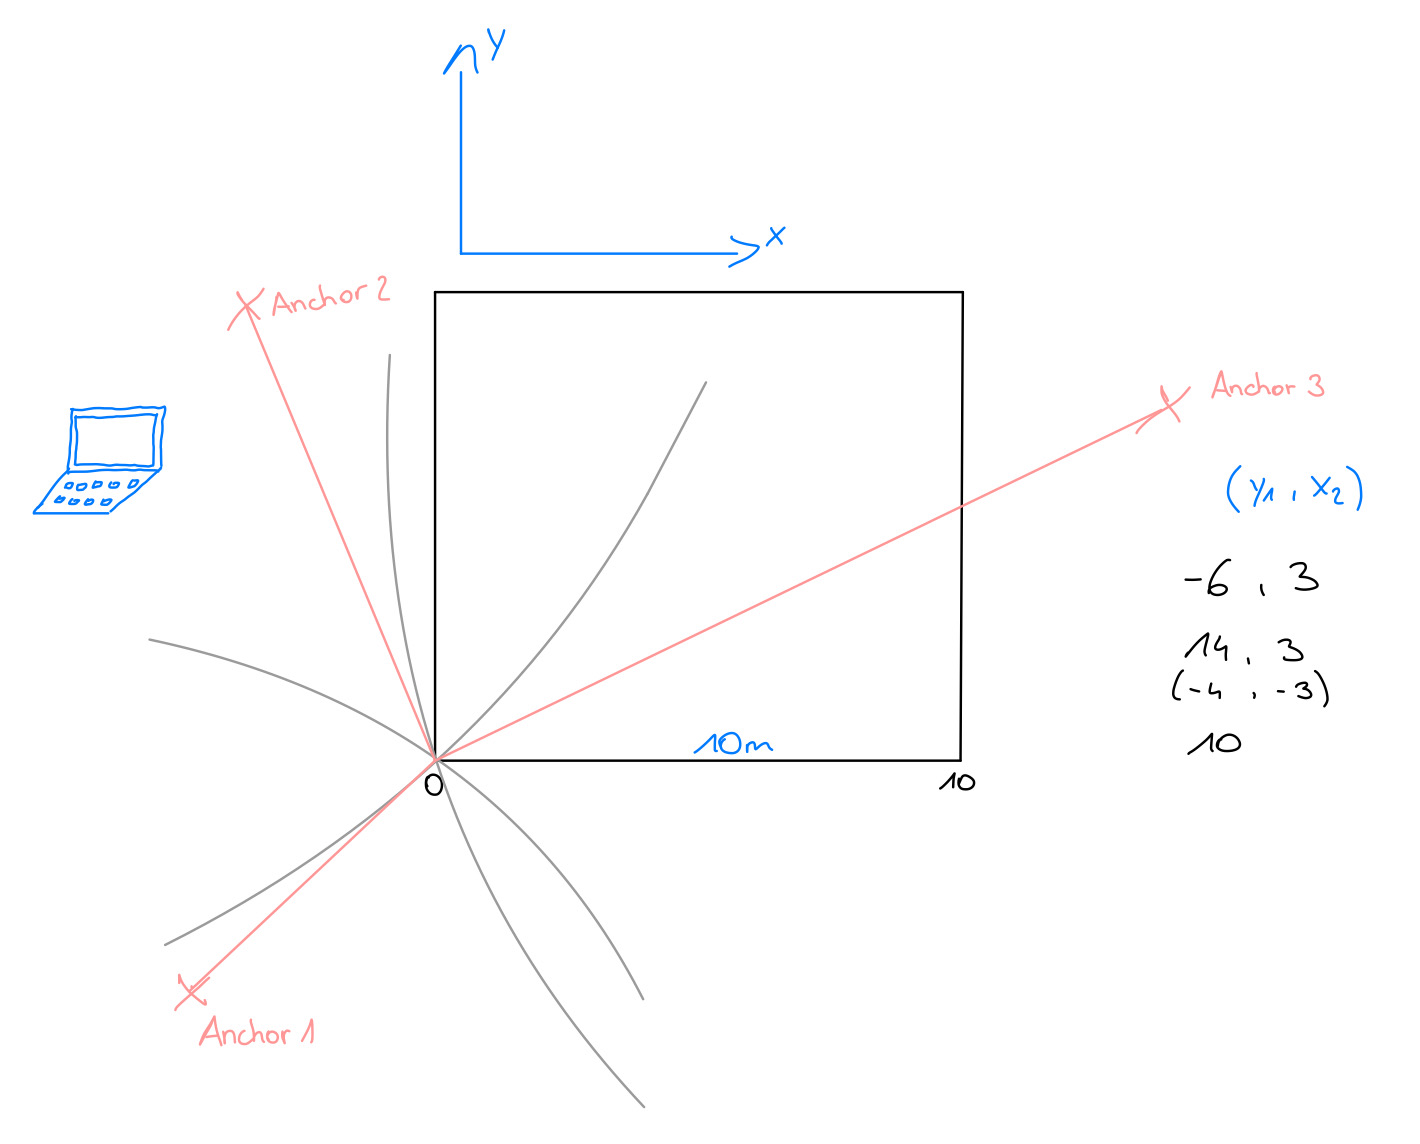 y
x
Anchor 2
Anchor 3
(y1 , x2)
-6 , 3
14 , 3
(-4 , -3)
10m
10
0
10
Anchor 1